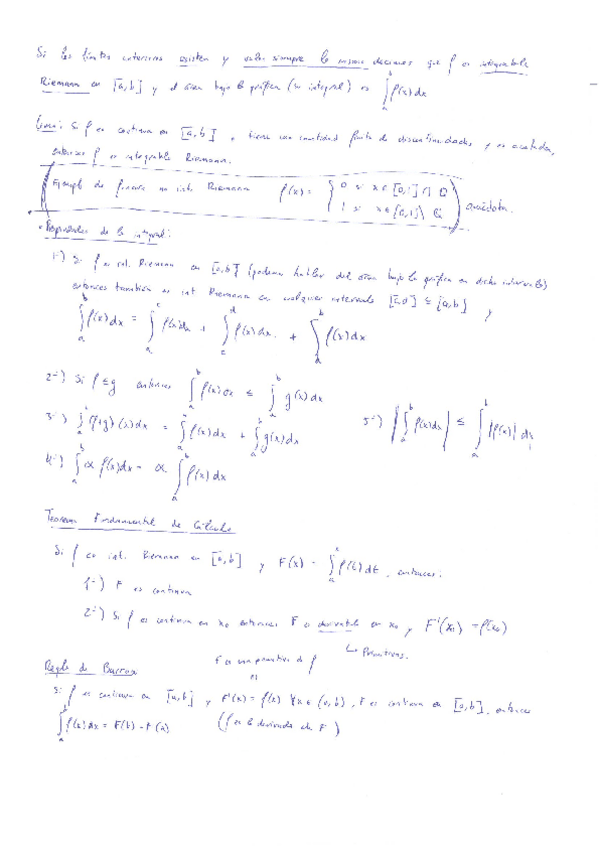 Si los límites anteriores existen y valen siempre lo mismo decimos que f es integrable
Riemann en [a,b] y el área bajo la gráfica (su integral) es ∫_a^b f(x)dx
: Si f es continua en [a,b] o tiene una cantidad finita de discontinuidades y es acotada,
entonces f es integrable Riemann.
Ejemplo de función no int. Riemann f(x) = { 0 si x∈[0,1]∩Q
1 si x∈[0,1]\Q anécdota.
• Propiedades de la integral:
1-) Si f es int. Riemann en [a,b] (podemos hablar del área bajo la gráfica en dicho intervalo)
entonces también es int Riemann en cualquier intervalo [c,d] ⊆ [a,b] y
∫_a^b f(x)dx = ∫_a^c f(x)dx + ∫_c^d f(x)dx + ∫_d^b f(x)dx
2-) Si f ≤ g entonces ∫_a^b f(x)dx ≤ ∫_a^b g(x)dx
3-) ∫_a^b (f+g)(x)dx = ∫_a^b f(x)dx + ∫_a^b g(x)dx 5-) |∫_a^b f(x)dx| ≤ ∫_a^b |f(x)| dx
4-) ∫_a^b α f(x)dx = α ∫_a^b f(x)dx
Teorema Fundamental de Cálculo
Si f es int. Riemann en [a,b] y F(x) = ∫_a^x f(t)dt, entonces:
1-) F es continua
2-) Si f es continua en x₀ entonces F es derivable en x₀ y F'(x₀) = f(x₀)
F es una primitiva de f ↳ Primitivas.
Regla de Barrow
Si f es continua en [a,b] y F'(x) = f(x) ∀x∈(a,b), F es continua en [a,b], entonces
∫_a^b f(x)dx = F(b) - F(a) (f es la derivada de F)